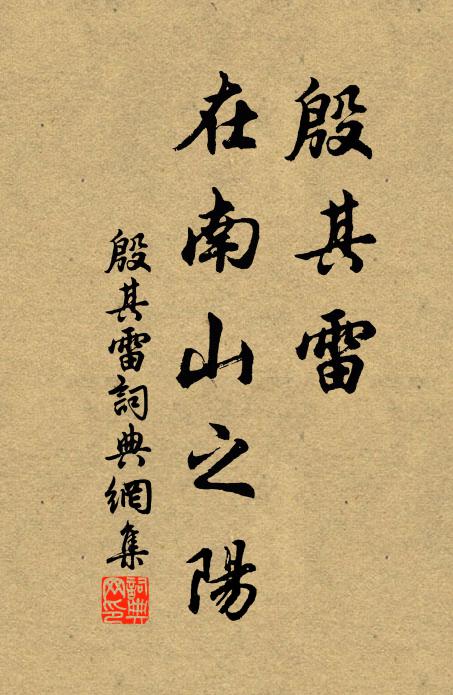 殷其雷
在南山之陽
殷其雷詞典網集
詞典網印